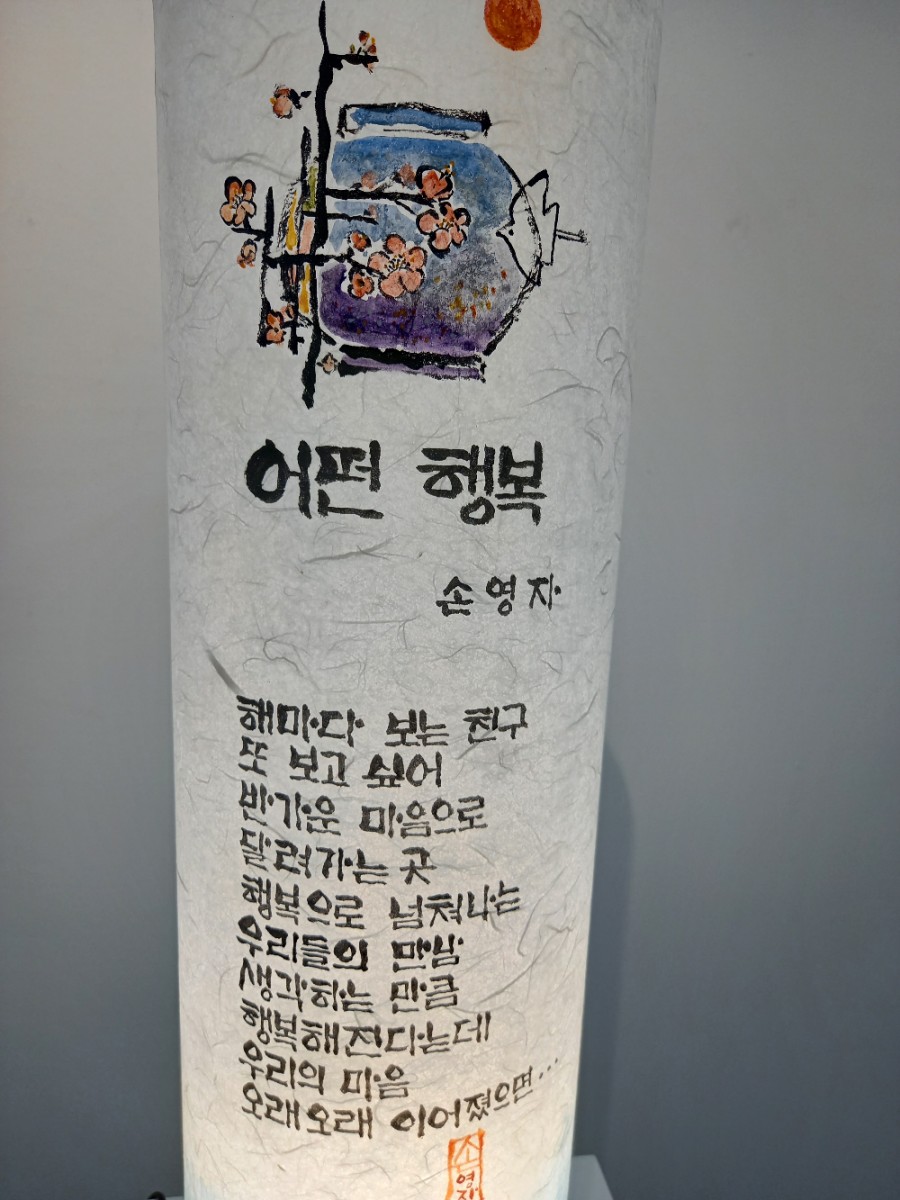 어떤 행복
손영자
해마다 보는 친구
또 보고 싶어
반가운 마음으로
달려가는 곳
행복으로 넘쳐나는
우리들의 만남
생각하는 만큼
행복해진다는데
우리의 마음
오래오래 이어졌으면...
손
영
자